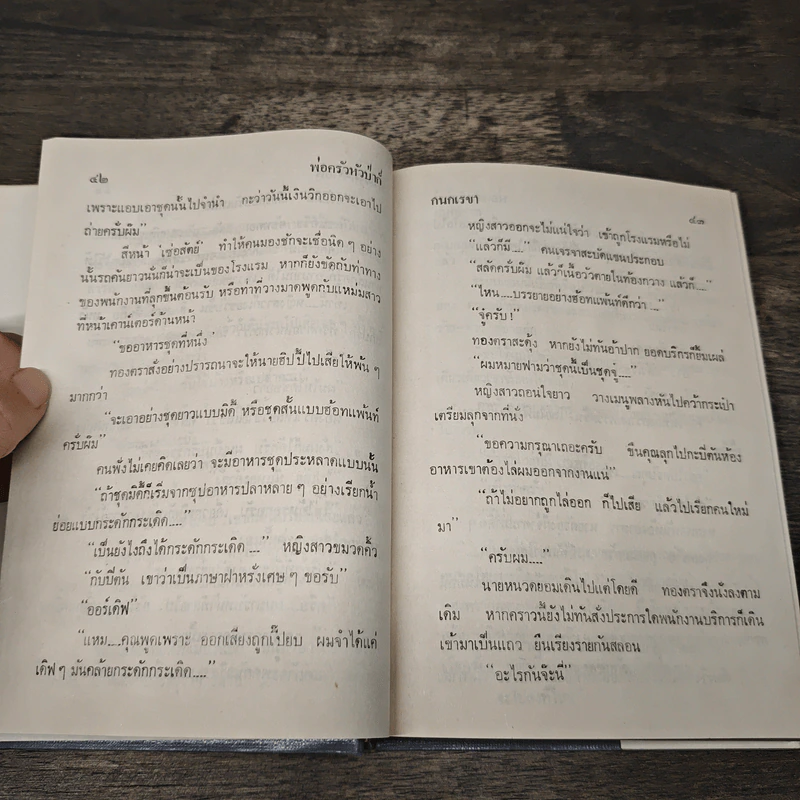 ๔๒
พ่อครัวหัวป่าก์
เพราะแอบเอาชุดนั้นไปจำนำ กะว่าวันนี้เงินวิกออกจะเอาไป
ถ่ายครับผม”
สีหน้า ‘เซ่อสัตย์’ ทำให้คนมองชักจะเชื่อนิด ๆ อย่าง
นั้นรถคันยาวนั่นก็น่าจะเป็นของโรงแรม หากก็ยังขัดกับท่าทาง
ของพนักงานที่ลุกขึ้นต้อนรับ หรือท่าที่วางมาดพูดกับแหม่มสาว
ที่หน้าเคาน์เตอร์ด้านหน้า
“ขออาหารชุดที่หนึ่ง”
ทองตราสั่งอย่างปรารถนาจะให้นายฮิปปี้ไปเสียให้พ้น ๆ
มากกว่า
“จะเอาอย่างชุดยาวแบบมิดี้ หรือชุดสั้นแบบฮ้อทแพ้นท์
ครับผม”
คนฟังไม่เคยคิดเลยว่า จะมีอาหารชุดประหลาดแบบนั้น
“ถ้าชุดมิดี้ก็เริ่มจากซุปอาหารปลาหลาย ๆ อย่างเรียกน้ำ
ย่อยแบบกระดักกระเดิด....”
“เป็นยังไงถึงได้กระดักกระเดิด ...” หญิงสาวขมวดคิ้ว
“กับปิตัน เขาว่าเป็นภาษาฝาหรั่งเศษ ๆ ขอรับ”
“ออร์เดิฟ”
“แหม....คุณพูดเพราะ ออกเสียงถูกเปี๊ยบ ผมจำได้แค่
เดิฟ ๆ มันคล้ายกระดักกระเดิด....”
กนกเรขา
๔๓
หญิงสาวออกจะไม่แน่ใจว่า เข้าถูกโรงแรมหรือไม่
“แล้วก็มี....” คนเจรจาสะบัดแขนประกอบ
“สลัดครับผม แล้วก็เนื้อวัวตายในท้องกวาง แล้วก็....”
“ไหน....บรรยายอย่างฮ้อทแพ้นท์ดีกว่า ....”
“จู๋ครับ !”
ทองตราสะดุ้ง หากยังไม่ทันอ้าปาก ยอดบริกรก็ยิ้มเผล่
“ผมหมายฟามว่าชุดนี้เป็นชุดจู๋....”
หญิงสาวถอนใจยาว วางเมนูพลางหันไปคว้ากระเป๋า
เตรียมลุกจากที่นั่ง
“ขอความกรุณาเถอะครับ ขืนคุณลุกไปกะปิตันห้อง
อาหารเขาต้องไล่ผมออกจากงานแน่”
“ถ้าไม่อยากถูกไล่ออก ก็ไปเสีย แล้วไปเรียกคนใหม่
มา”
“ครับผม....”
นายหนวดยอมเดินไปแต่โดยดี ทองตราจึงนั่งลงตาม
เดิม หากคราวนี้ยังไม่ทันสั่งประการใดพนักงานบริการก็เดิน
เข้ามาเป็นแถว ยืนเรียงรายกันสลอน
“อะไรกันจ๊ะนี่”